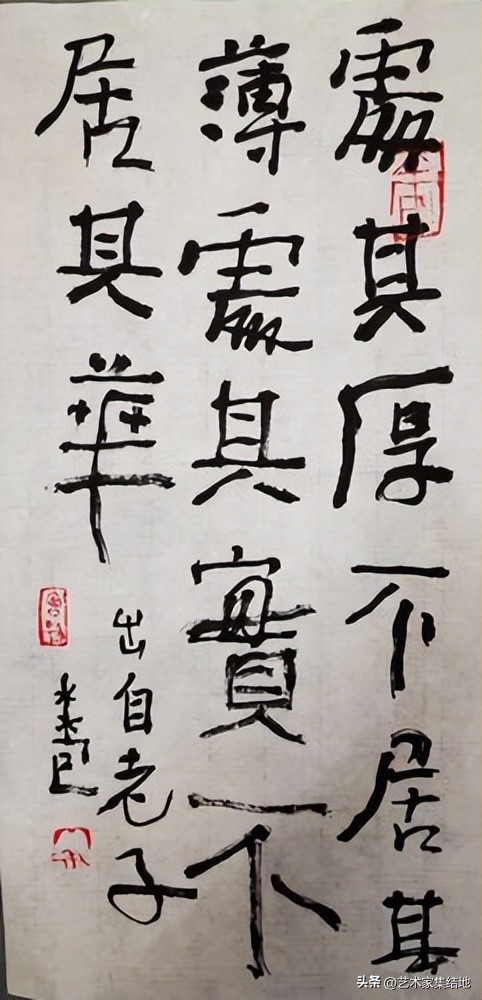 處其厚不居其
薄處其實不
居其華
出自老子
头条 @艺术家集结地